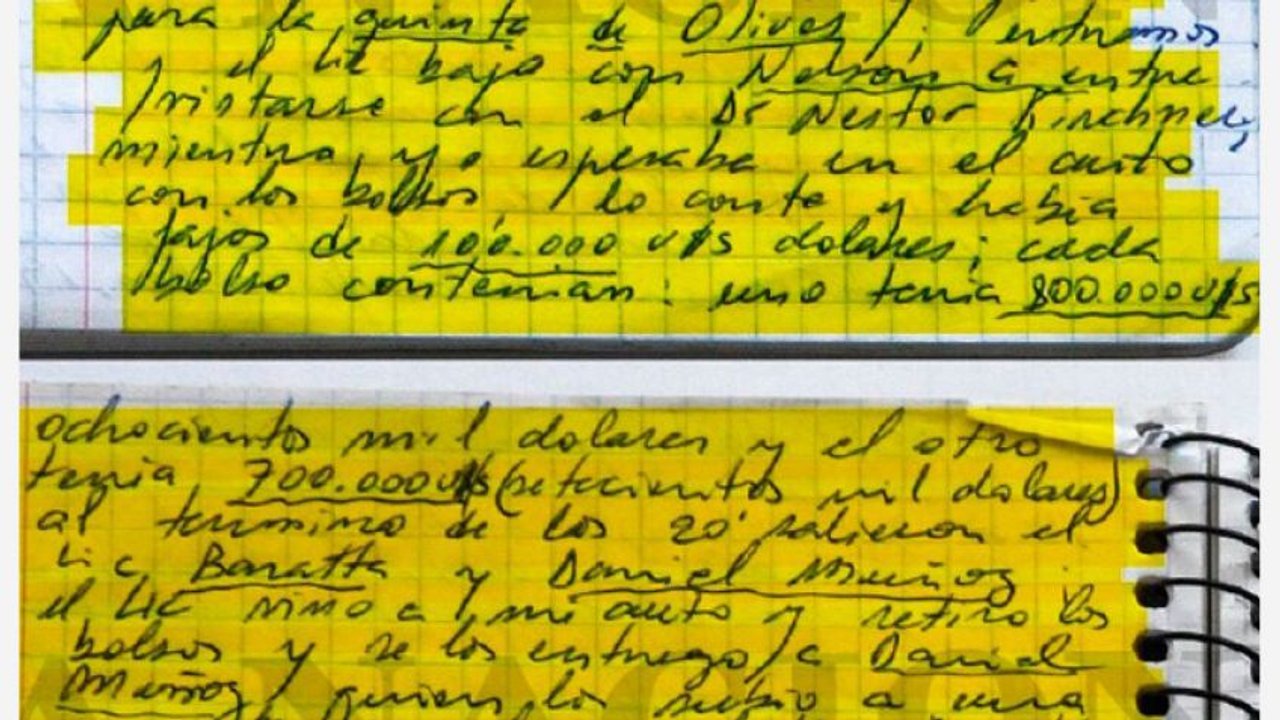 para la quinta de Olivos, entramos
y el Lic bajo con Nelson a entre
/vistarse con el Dr Nestor Kirchner,
mientras, yo esperaba en el auto
con los bolsos, lo conte y habia
fajos de 100.000 u$s dolares; cada
bolso contenian: uno tenia 800.000 u$s
ochocientos mil dolares y el otro
tenia 700.000 u$s (setecientos mil dolares)
al termino de los 20' salieron el
Lic Baratta y Daniel Muñoz.
el Lic vino a mi auto y retiro los
bolsos y se los entrego a Daniel
Muñoz, quien los subio a una